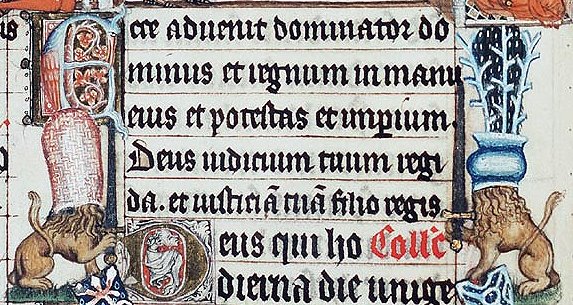 Ecce aduenit dominator do
minus et regnum in manu
eius et potestas et imperium.
Deus iudicium tuum regi
da. et iusticiā tuā filio regis.
Deus qui ho Coll'c
dierna die unige